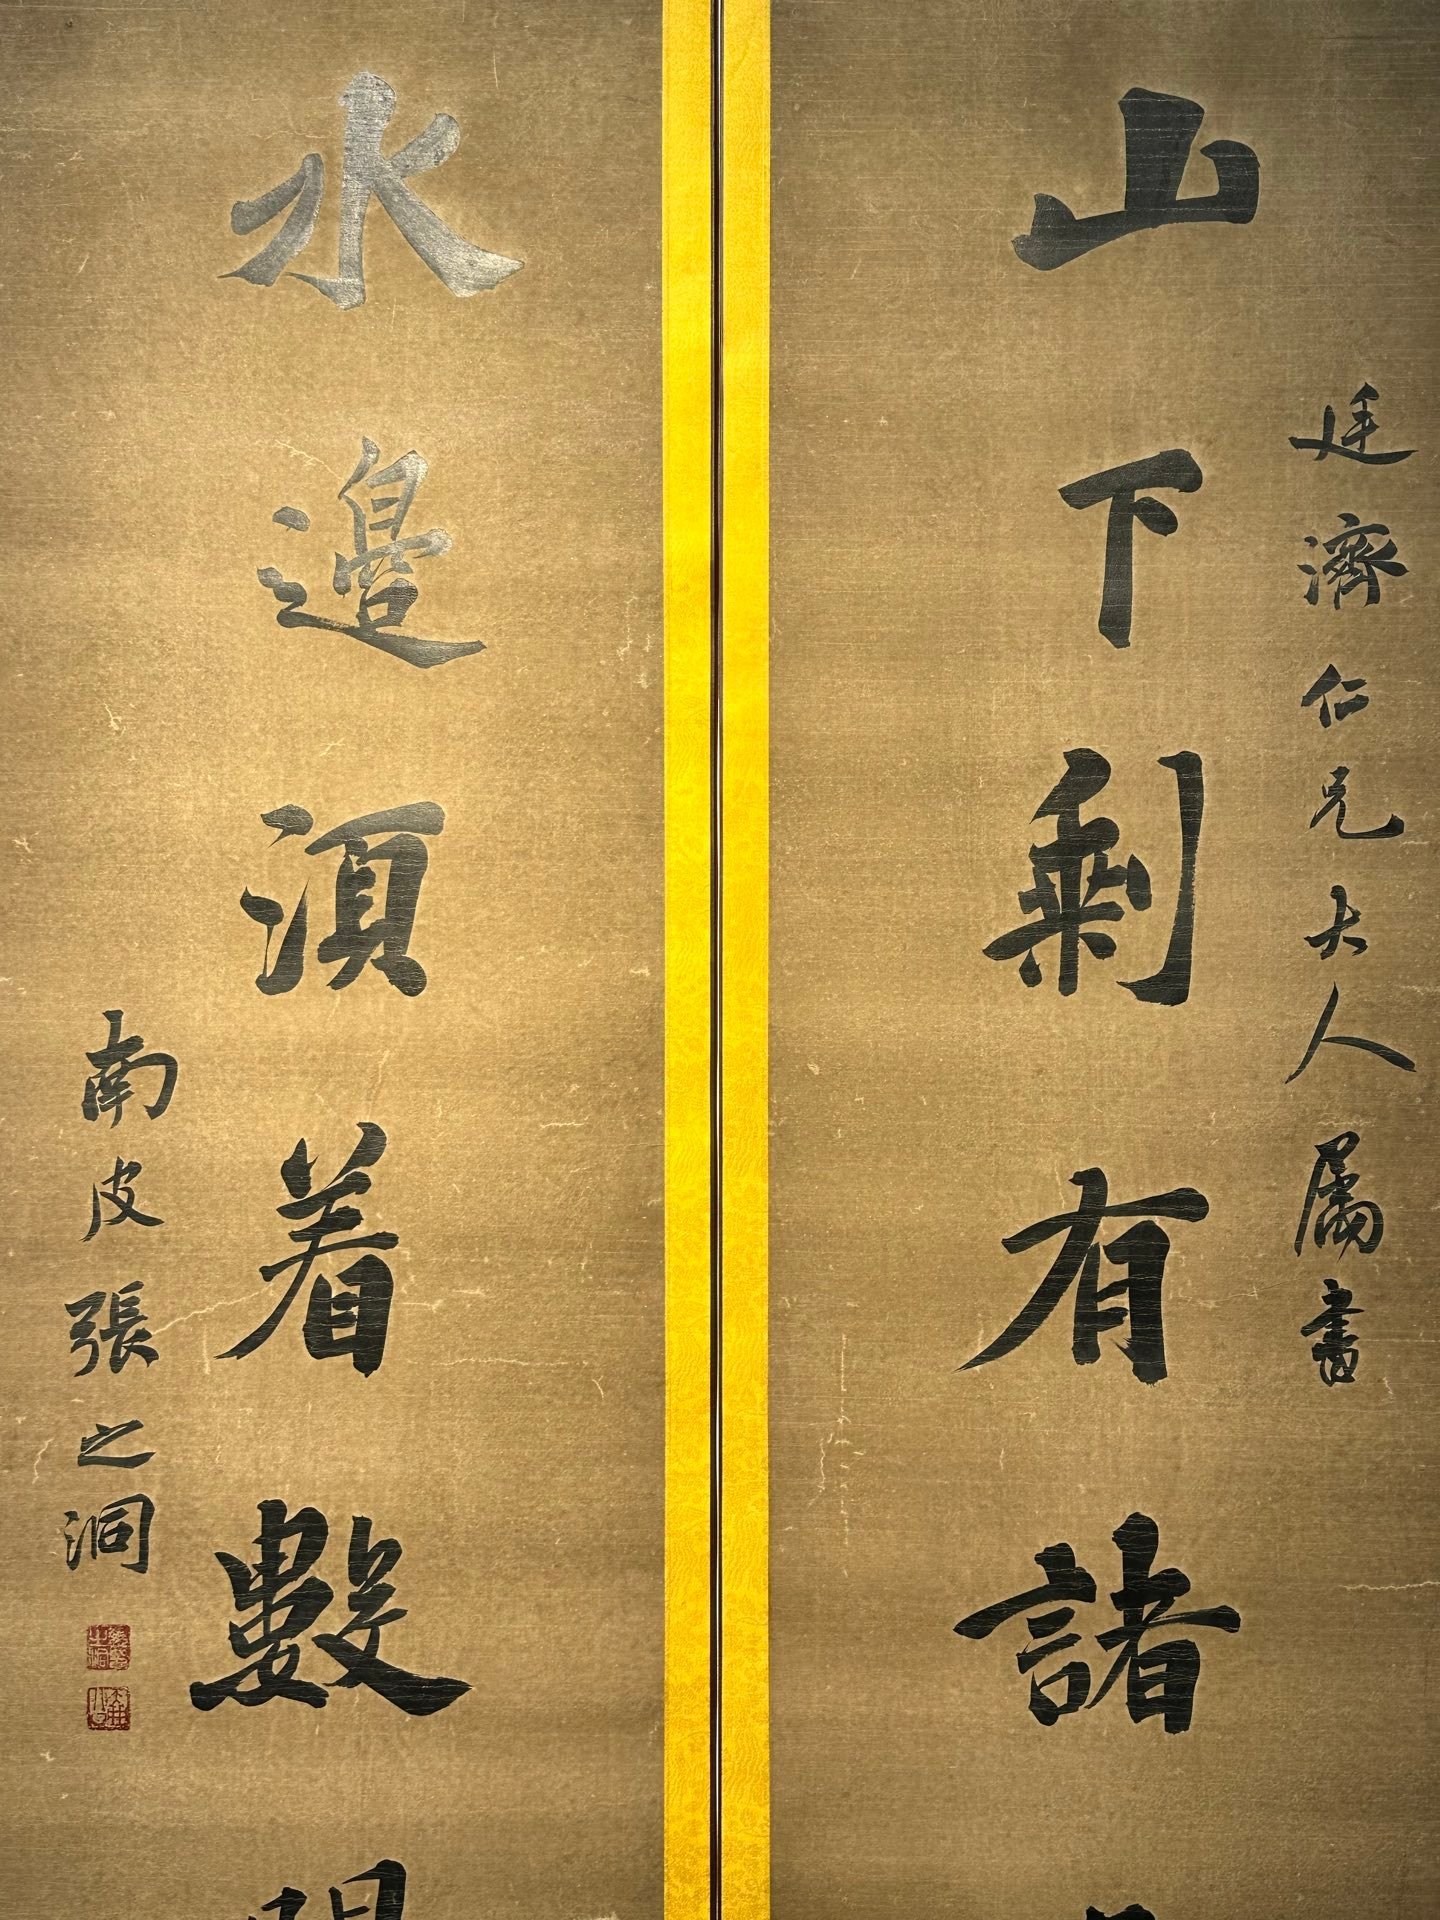 廷濟仁兄大人屬書
山下剩有諸
水邊須着數
南皮張之洞